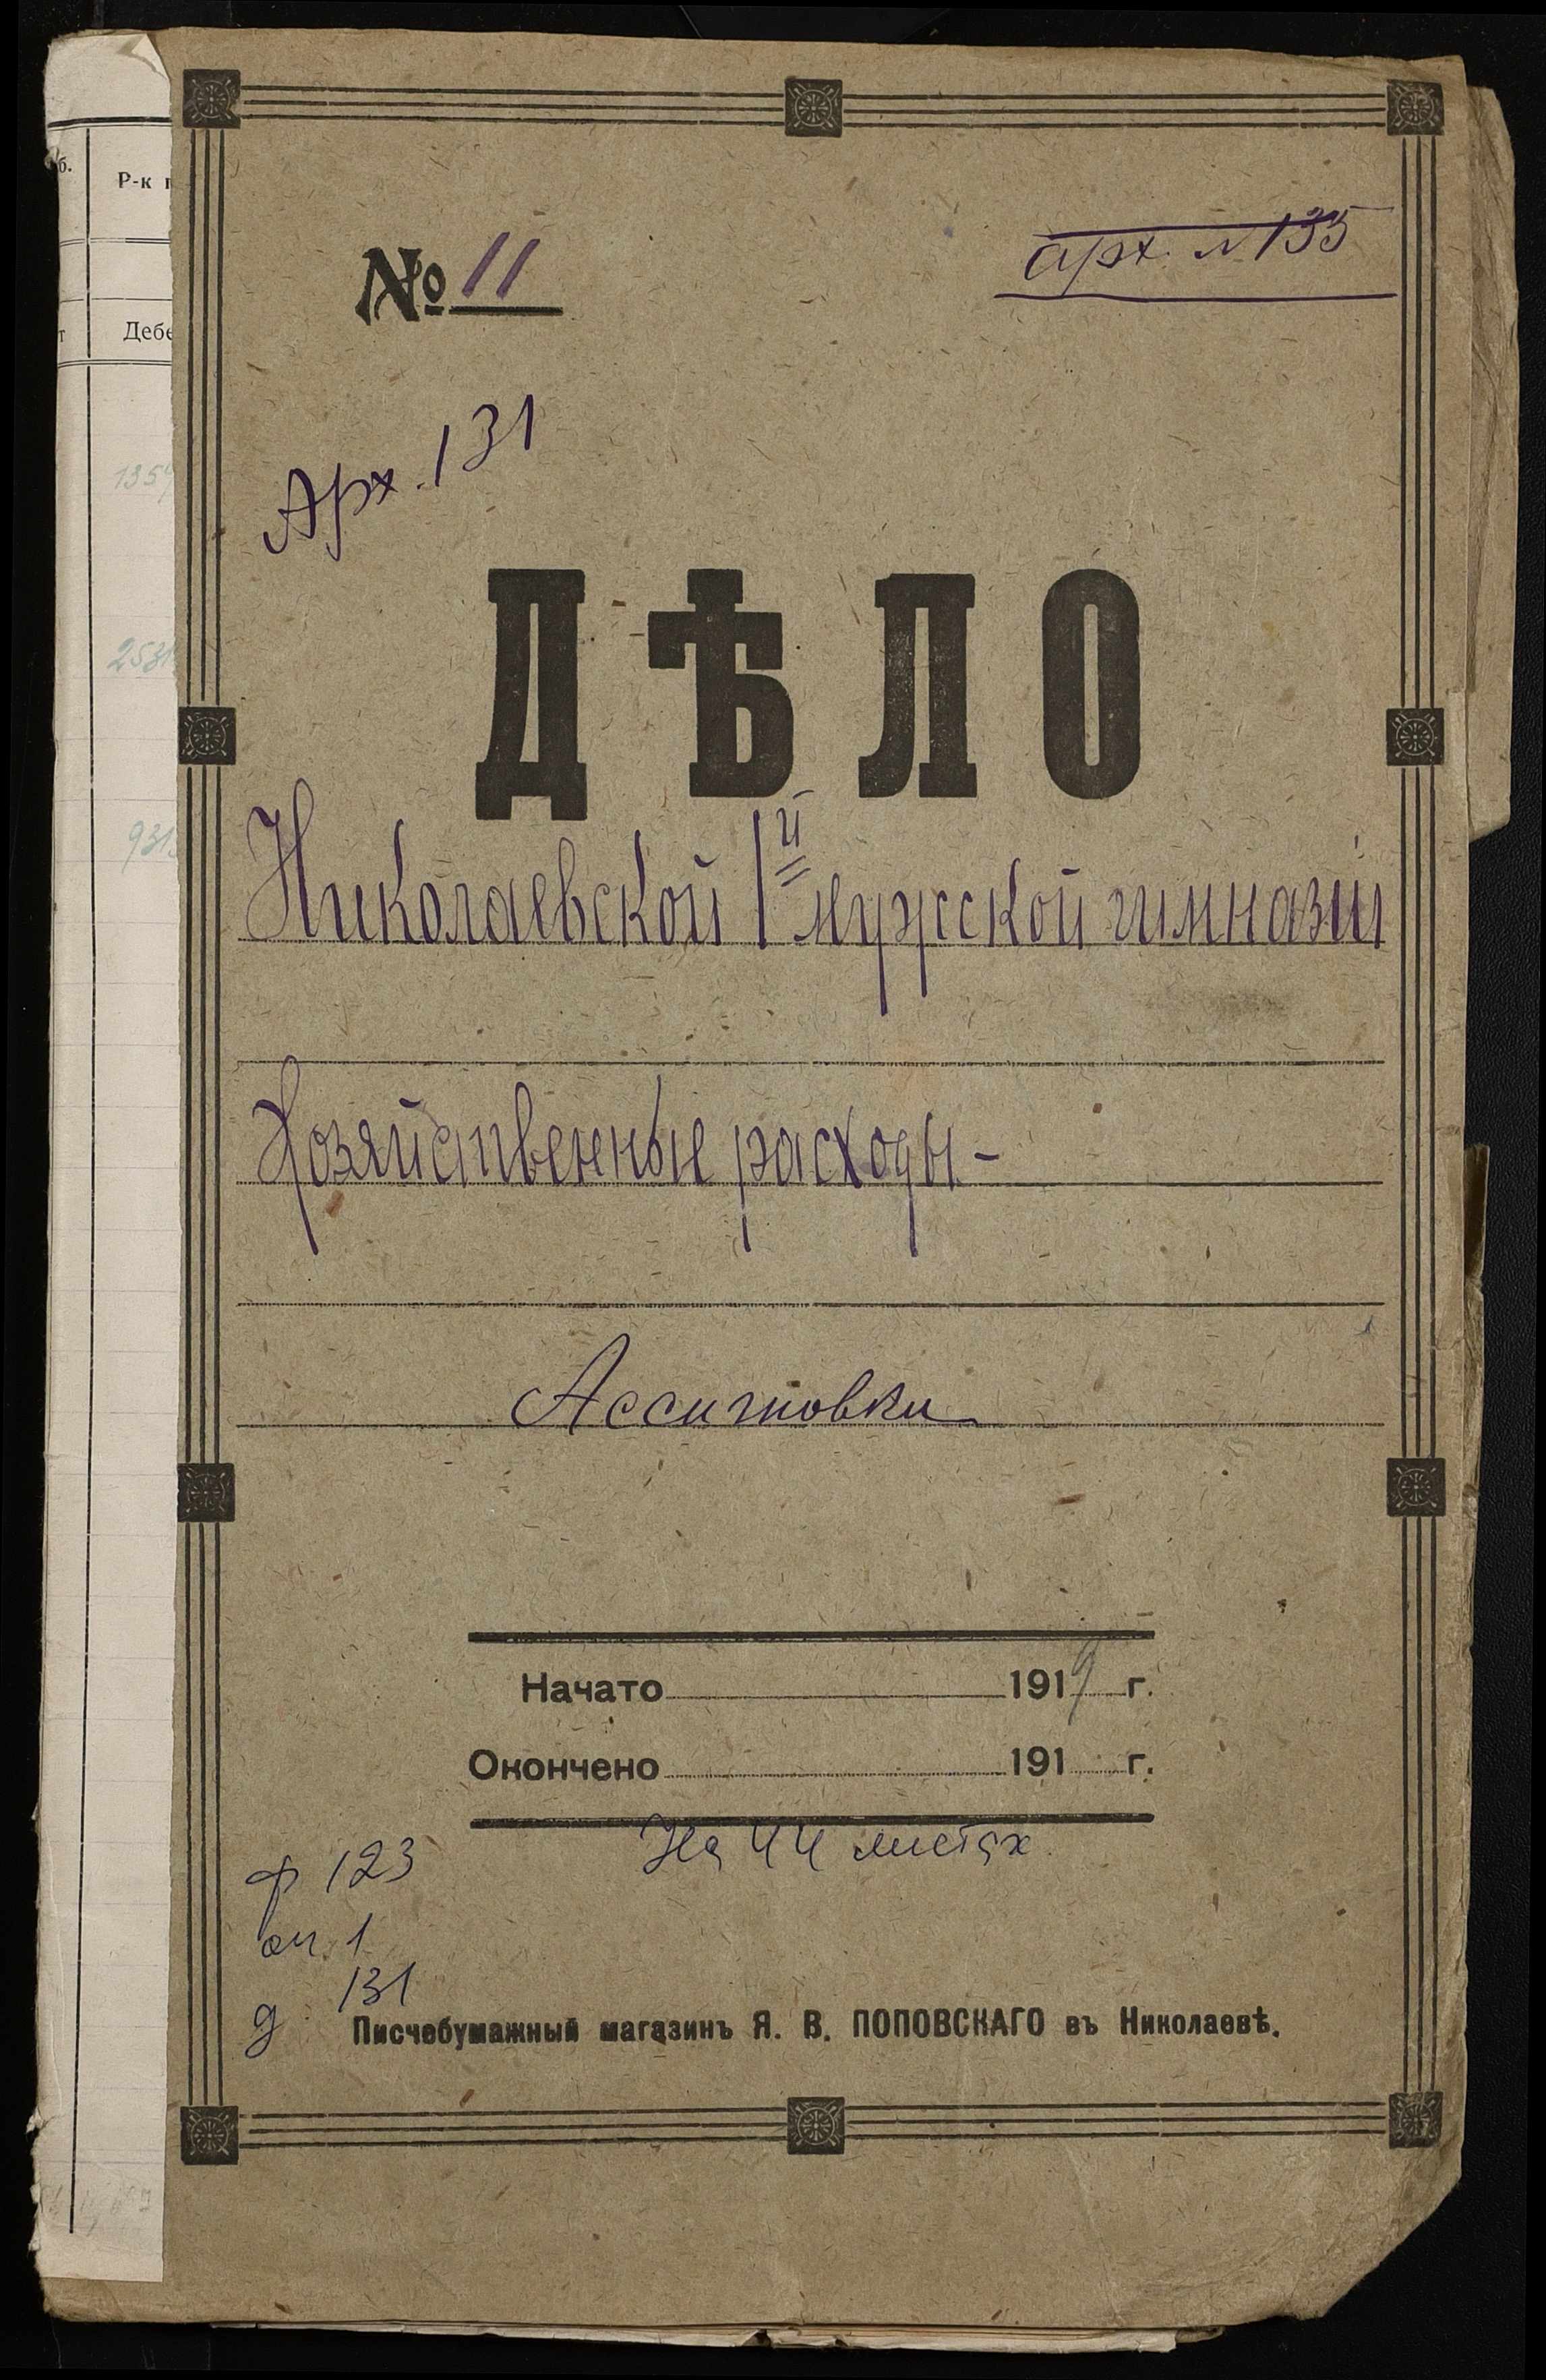 б.
Р-к
Дебе
№ 11
арх. № 135
Арх. 131
ДѢЛО
Николаевской 1й мужской гимназии
Хозяйственные расходы -
Ассигновки
Начато 1919 г.
Окончено 191 г.
На 44 листах
ф 123
оп. 1
д. 131
Писчебумажный магазинъ Я. В. ПОПОВСКАГО въ Николаевѣ.